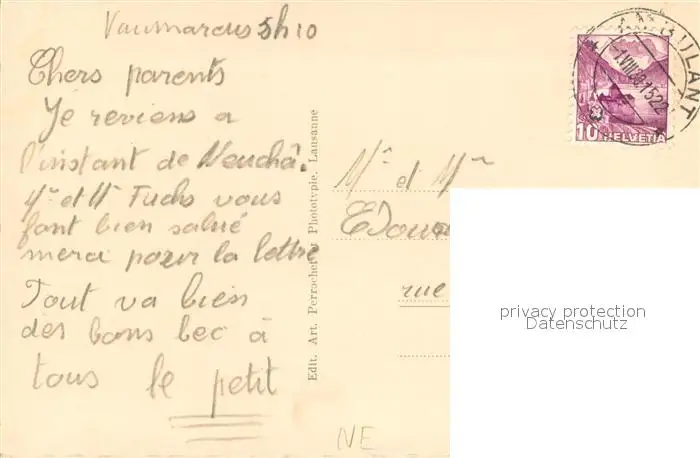 Vaumarcus 5h10
Chers parents
Je reviens a
l'instant de Neuchâ.
Mr et Mm Fuchs vous
font bien salué
merci pour la lettre
Tout va bien
des bons bec à
tous le petit
Edit. Art. Perrochet Phototypie, Lausanne
Mr et Mm
Edoua
rue
NE
AMBULANT
10 HELVETIA
privacy protection
Datenschutz